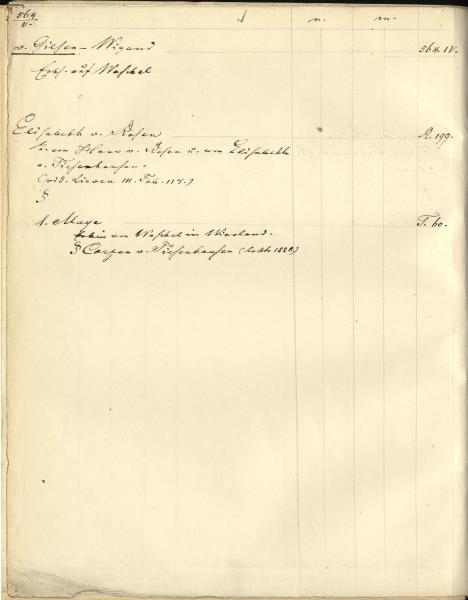 564. n. m.
v.
v. Gilsen - Wigand 364. IV.
Erbh. auf Waschel
Elisabeth v. Rosen R. 199.
T. von Hans v. Rosen u. von Elisabeth
v. Tiesenhausen.
(vid. Lieven III. Tab. 117.)
§
1. Maye T. 60.
Erbin von Waschel in Wierland.
§ Casper v. Tiesenhausen (lebte 1528.)